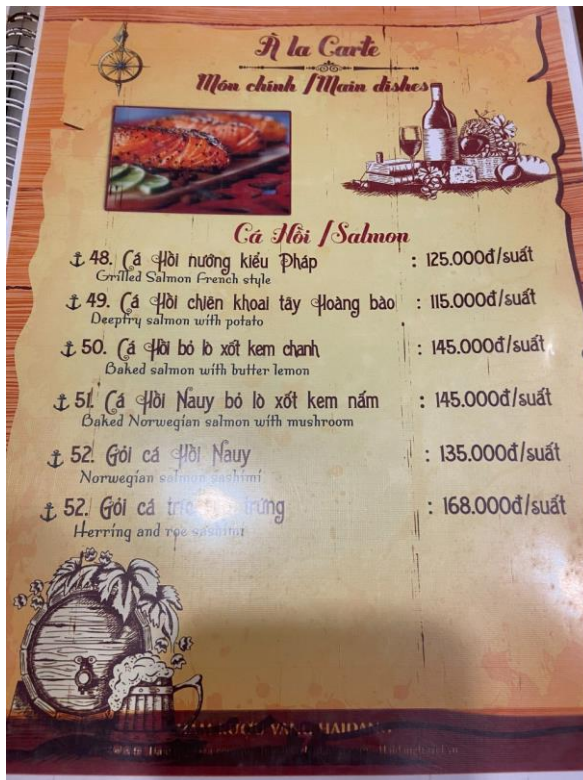 À la Carte
Món chính / Main dishes
Cá Hồi / Salmon
48. Cá Hồi nướng kiểu Pháp : 125.000đ/suất
Grilled Salmon French style
49. Cá Hồi chiên khoai tây Hoàng bào : 115.000đ/suất
Deepfry salmon with potato
50. Cá Hồi bỏ lò xốt kem chanh : 145.000đ/suất
Baked salmon with butter lemon
51. Cá Hồi Nauy bỏ lò xốt kem nấm : 145.000đ/suất
Baked Norwegian salmon with mushroom
52. Gỏi cá Hồi Nauy : 135.000đ/suất
Norwegian salmon sashimi
52. Gỏi cá trứng : 168.000đ/suất
Herring and roe sashimi